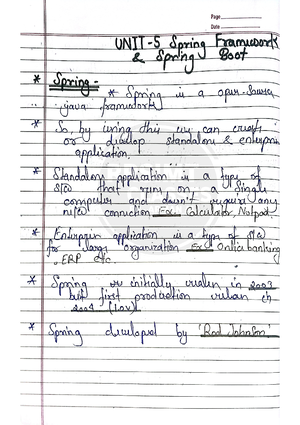 Page
Date
UNIT-5 Spring Framework
& Spring Boot
* Spring -
* Spring is a open-source
java framework
* So, by using this we can create
or develop standalone & enterprise
application.
* Standalone application is a type of
s/w that run on a single
computer and doesn't require any
n/w connection Ex: Calculator, Notpad
* Enterprise application is a type of s/w
for large organization Ex: Online banking
, ERP etc.
* Spring initially in 2003
but first production in
2004 (1.0v).
* Spring developed by 'Rod Johnson'